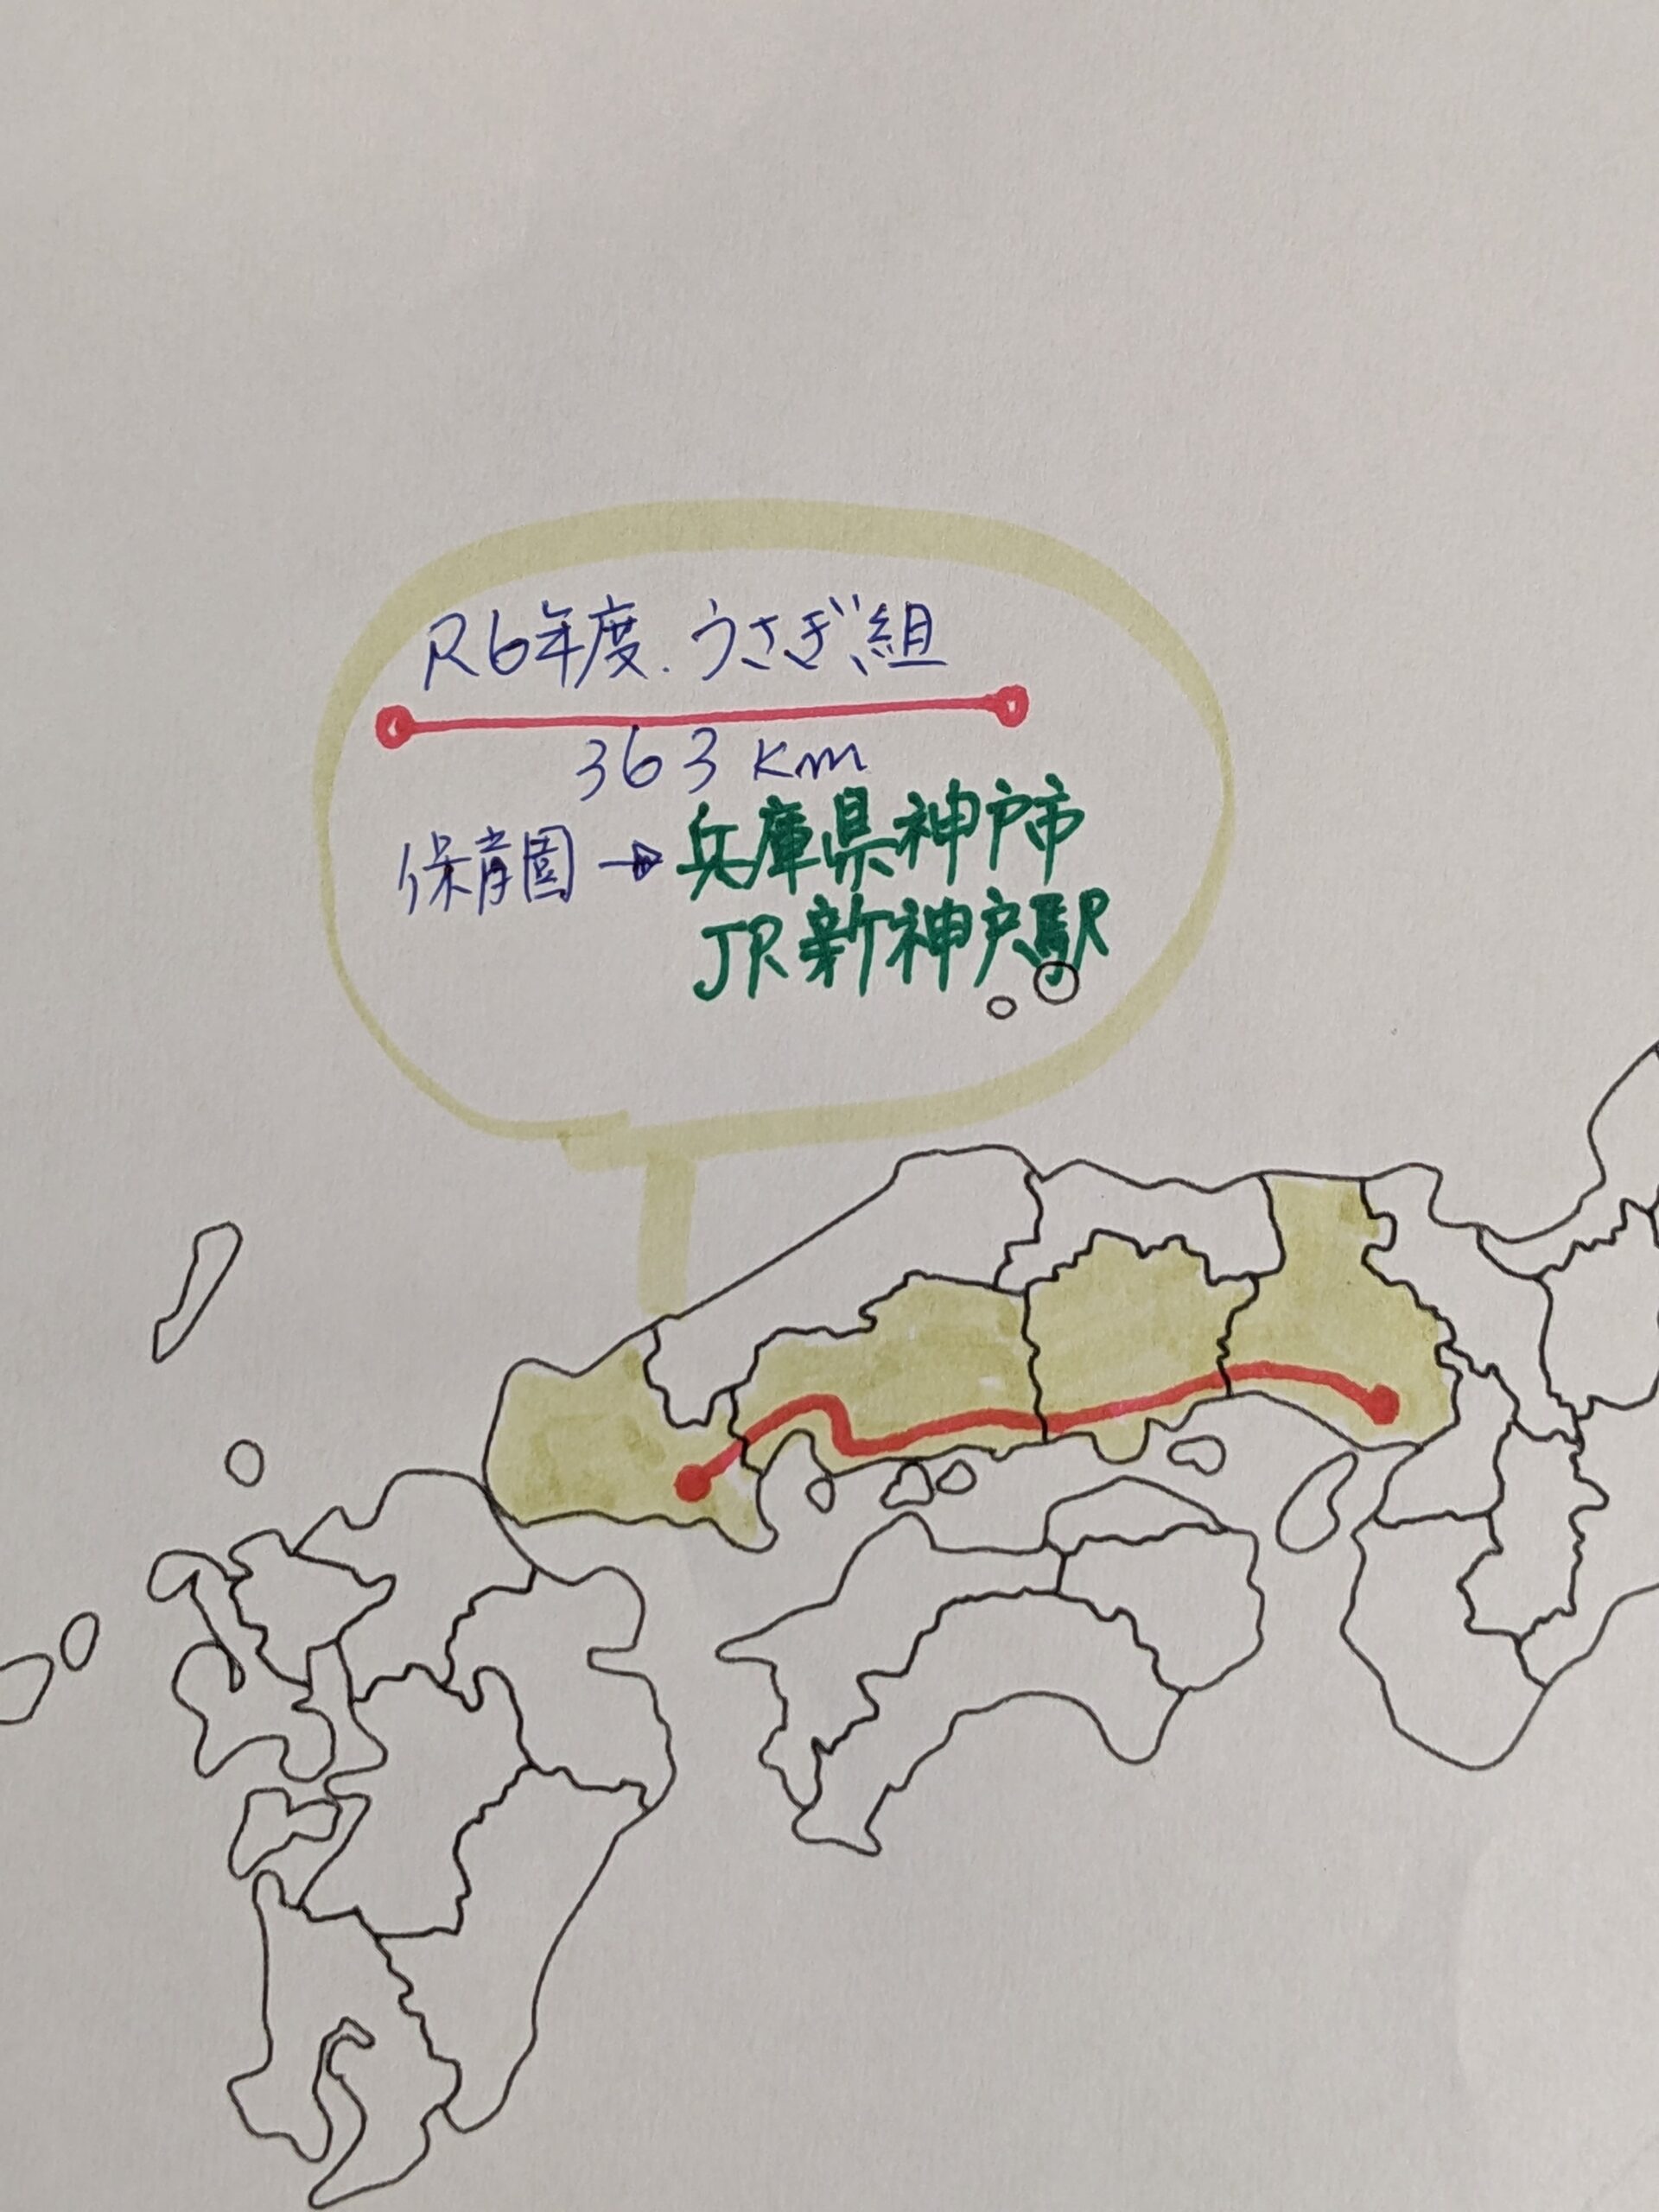 R6年度.うさぎ組
363 km
保育園→兵庫県神戸市
JR新神戸駅